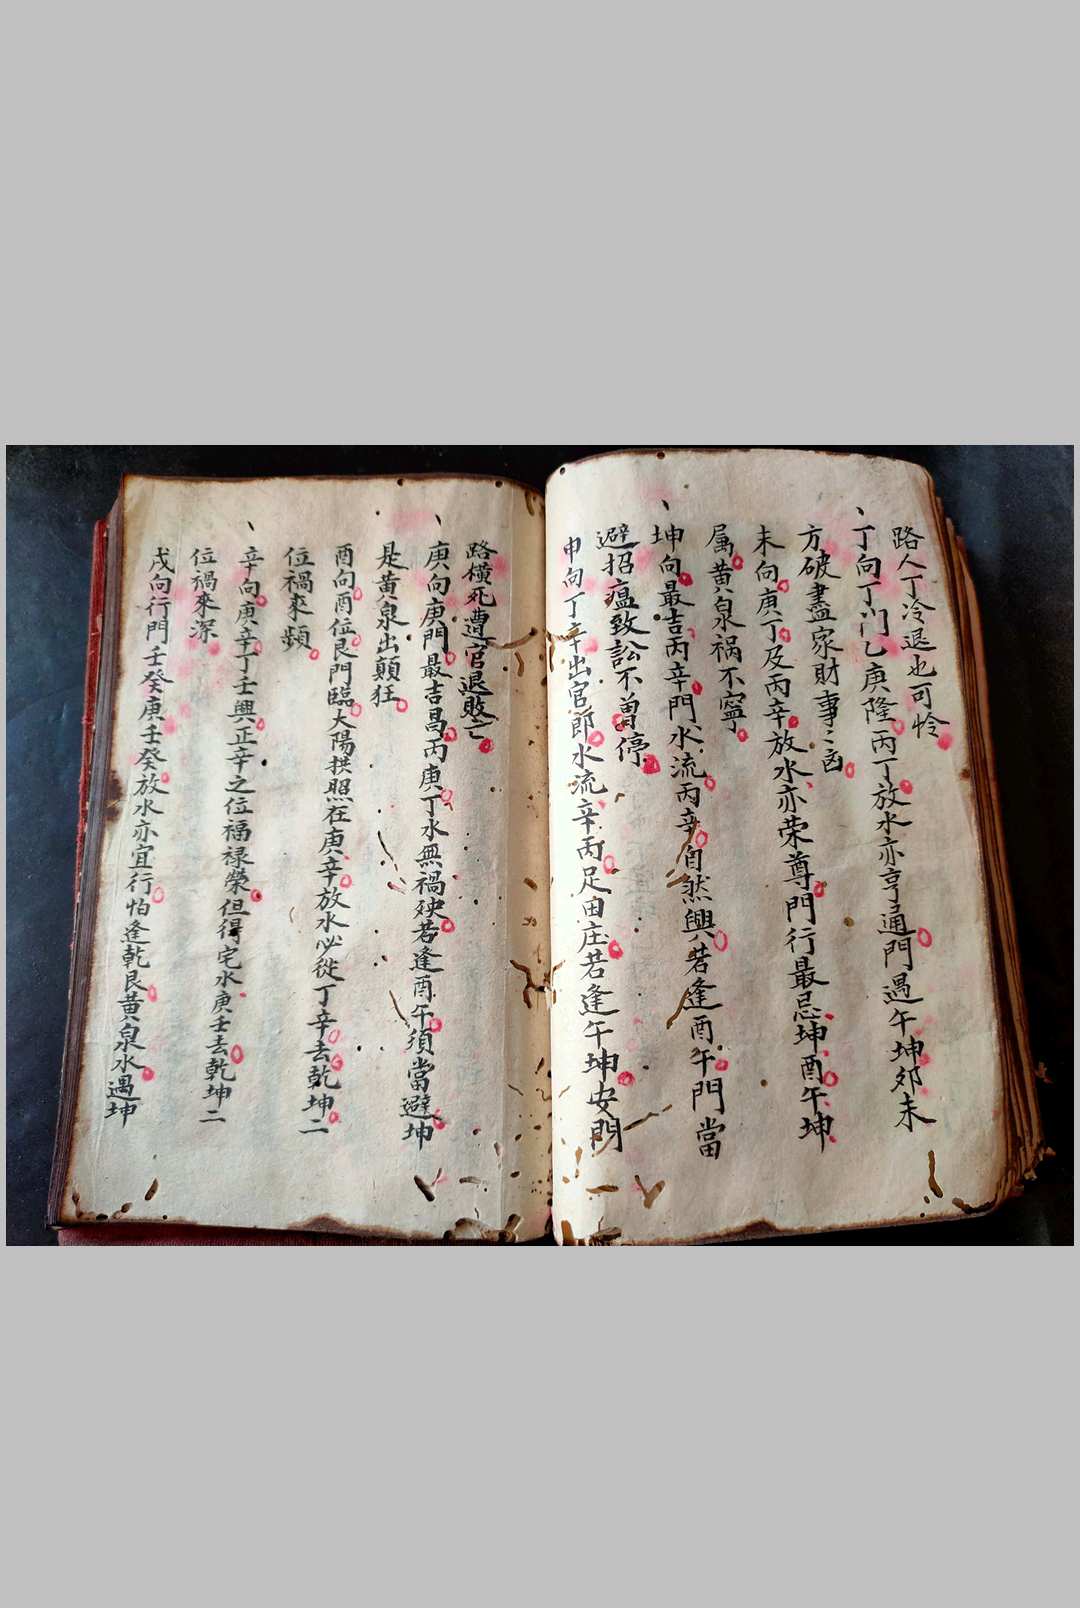 路人丁冷退也可怜
丁向丁门乙庚隆丙丁放水亦亨通門遇午坤夘未
方破盡家財事〻凶
未向庚丁及丙辛放水亦荣尊門行最忌坤酉午坤
属黄泉祸不寧
坤向最吉丙辛門水流丙辛自然興若逢酉午門當
避招瘟致訟不曾停
申向丁辛出官郎水流辛丙足田庄若逢午坤安門
路橫死遭官退敗亡
庚向庚門最吉昌丙庚丁水無禍殃若逢酉午須當避坤
是黄泉出顛狂
酉向酉位艮門臨大陽拱照在庚辛放水必從丁辛去乾坤二
位禍來頻
辛向庚辛丁壬興正辛之位福禄榮但得宅水庚壬去乾坤二
位禍來深
戌向行門壬癸庚壬癸放水亦宜行怕逢乾艮黄泉水遇坤